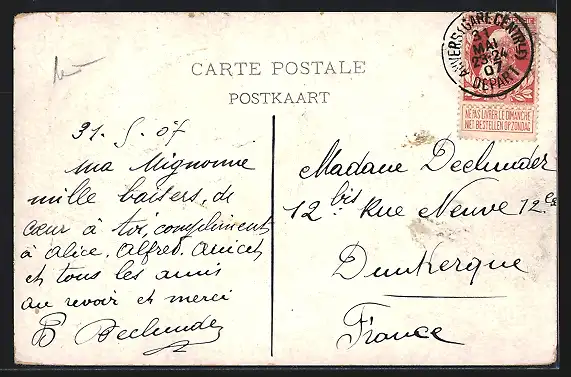 CARTE POSTALE
POSTKAART
ANVERS (GARE CENTRALE)
31
MAI
23-24
07
DÉPART
NE PAS LIVRER LE DIMANCHE
NIET BESTELLEN OP ZONDAG
31. 5. 07
ma Mignonne
mille baisers, de
cœur à toi, compliment
à Alice, Alfred, Anicet
et tous les amis
au revoir et merci
Madame
12 bis Rue Neuve 12
Dunkerque
France